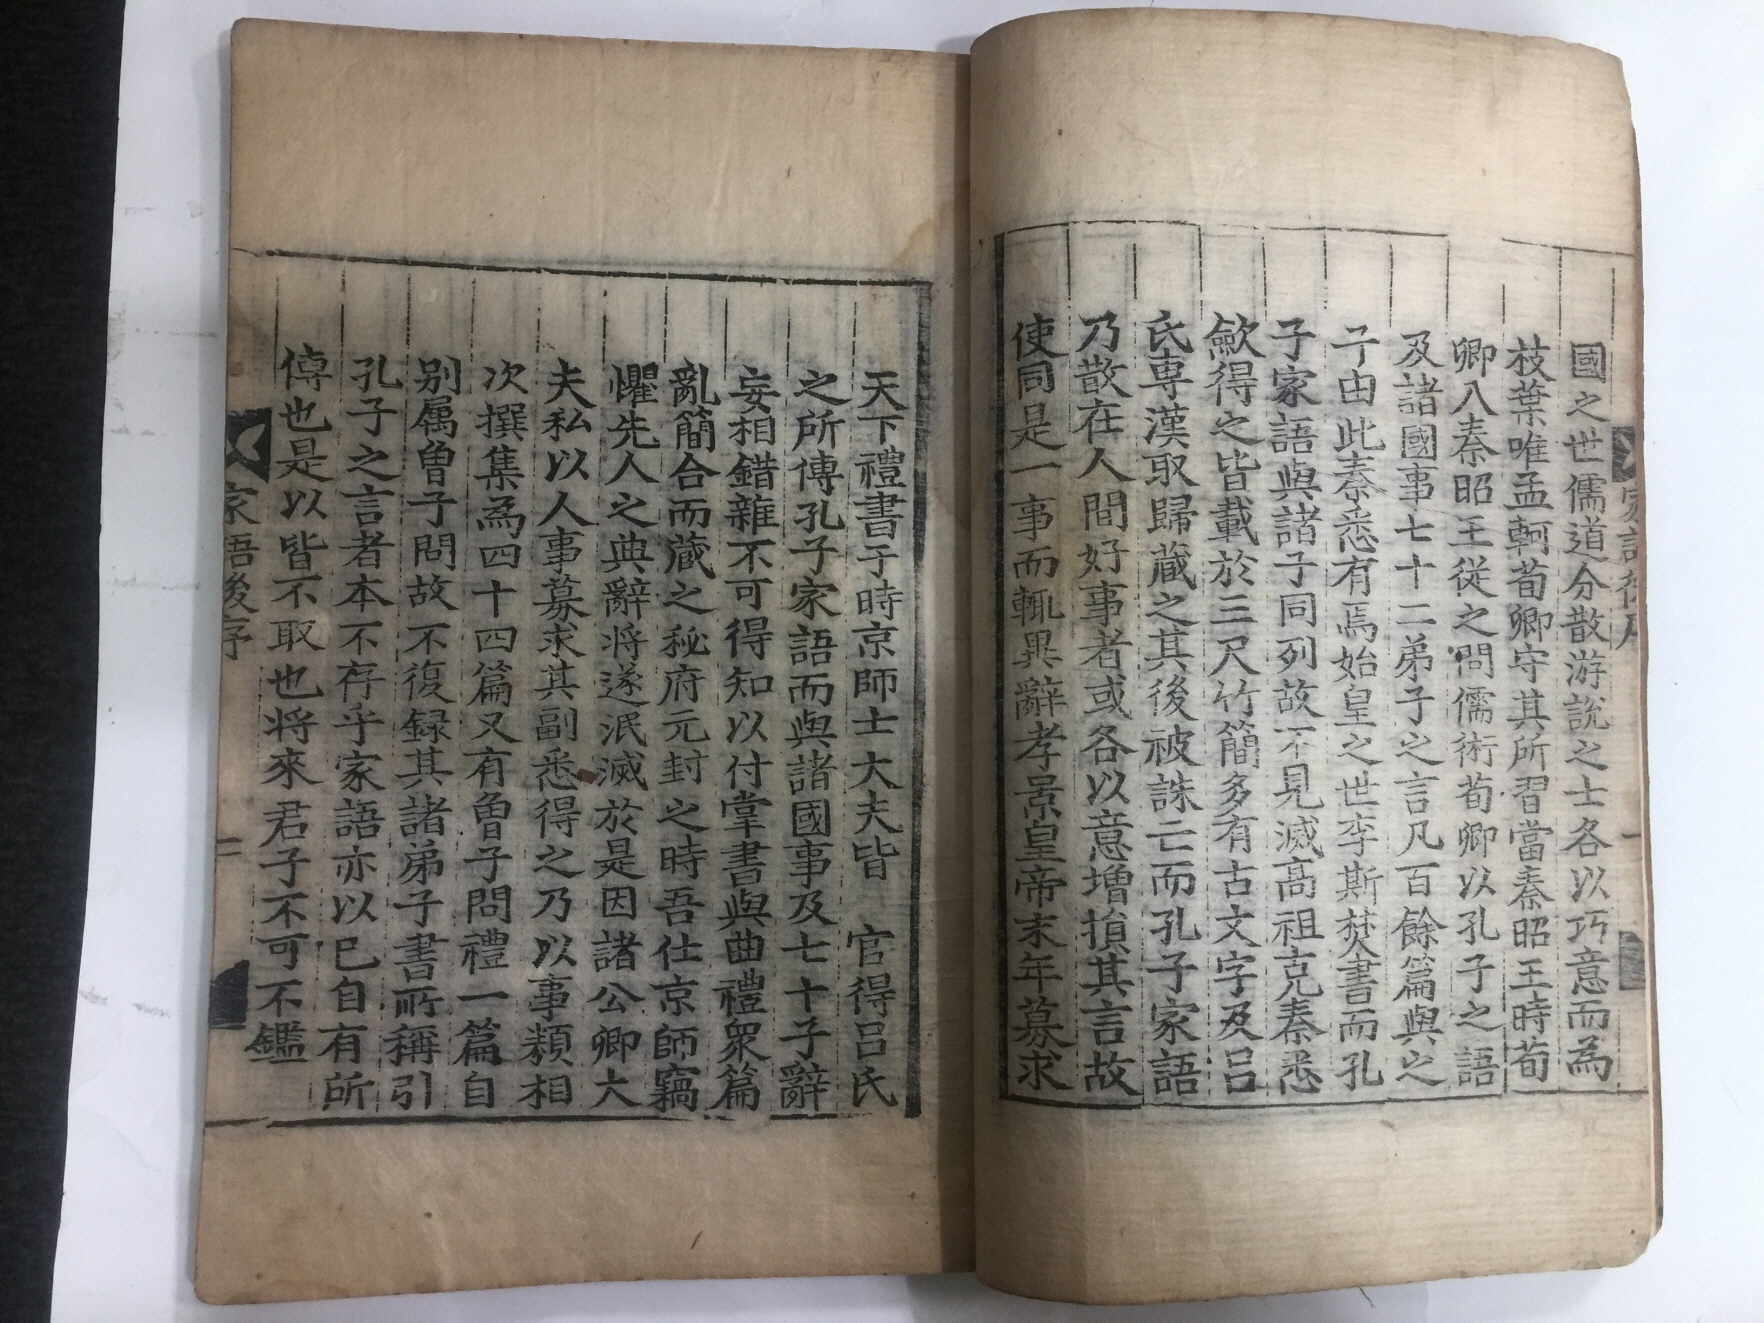 國之世儒道分散游說之士各以巧意而為
枝葉唯孟軻荀卿守其所習當秦昭王時荀
卿入秦昭王從之問儒術荀卿以孔子之語
及諸國事七十二弟子之言凡百餘篇與之
子由此秦悉有焉始皇之世李斯焚書而孔
子家語與諸子同列故不見滅高祖克秦悉
歛得之皆載於三尺竹簡多有古文字及呂
氏專漢取歸藏之其後被誅亡而孔子家語
乃散在人間好事者或各以意增損其言故
使同是一事而輒異辭孝景皇帝末年募求
天下禮書于時京師士大夫皆 官得呂氏
之所傳孔子家語而與諸國事及七十子辭
妄相錯雜不可得知以付掌書與曲禮衆篇
亂簡合而藏之秘府元封之時吾仕京師竊
懼先人之典辭将遂泯滅於是因諸公卿大
夫私以人事募求其副悉得之乃以事類相
次撰集為四十四篇又有魯子問禮一篇自
别属曽子問故不復録其諸弟子書所稱引
孔子之言者本不存乎家語亦以巳自有所
傳也是以皆不取也将來君子不可不鑑
家語後序
二